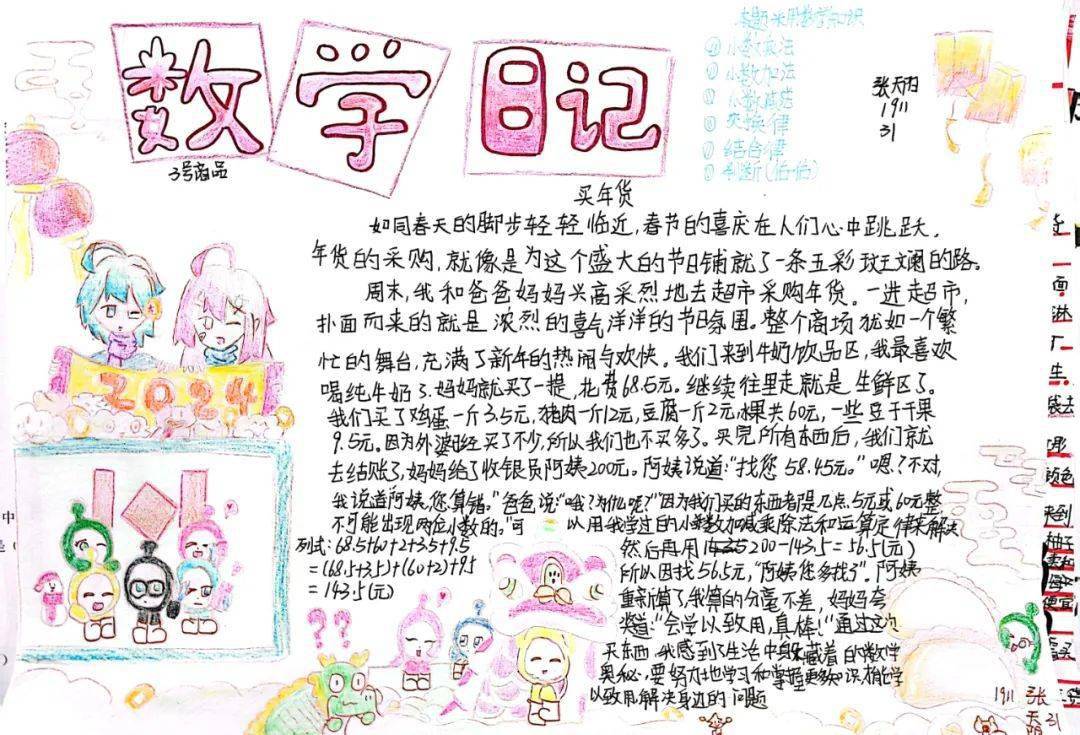 数学日记
3号商品
本题采用数学知识
①小数乘法
②小数加法
③小数减法
④交换律
⑤结合律
⑥判断(估估)
张天阳
1911
31
买年货
如同春天的脚步轻轻临近,春节的喜庆在人们心中跳跃。
年货的采购,就像是为这个盛大的节日铺就了一条五彩斑斓的路。
周末,我和爸爸妈妈兴高采烈地去超市采购年货。一进超市,
扑面而来的就是浓烈的喜气洋洋的节日氛围。整个商场犹如一个繁
忙的舞台,充满了新年的热闹与欢快。我们来到牛奶饮品区,我最喜欢
喝纯牛奶了,妈妈就买了一提,花费68.5元。继续往里走就是生鲜区了。
我们买了鸡蛋一斤3.5元,猪肉一斤12元,豆腐一斤2元,水果共60元,一些豆干果
9.5元。因为外婆已经买了不少,所以我们也不买多了。买完所有东西后,我们就
去结账了,妈妈给了收银员阿姨200元。阿姨说道:“找您58.45元。”嗯?不对,
我说道阿姨,您算错。”爸爸说:“哦?为什么呢?”因为我们买的东西都是几点5元或60元整
不可能出现两位小数的。”可以用我学过的小数加减乘除法和运算定律来解决
列式:68.5+60+2+3.5+9.5
=(68.5+3.5)+(60+2)+9.5
=143.5(元)
然后再用200-143.5=56.5(元)
所以因找56.5元,“阿姨您多找了”。阿姨
重新算了,我算的分毫不差,妈妈夸
奖道:“会学以致用,真棒!”通过这次
买东西,我感到了生活中躲藏着的数学
奥秘,要努力地学习和掌握更多知识,才能学
以致用,解决身边的问题
2024
1911
张天阳
31